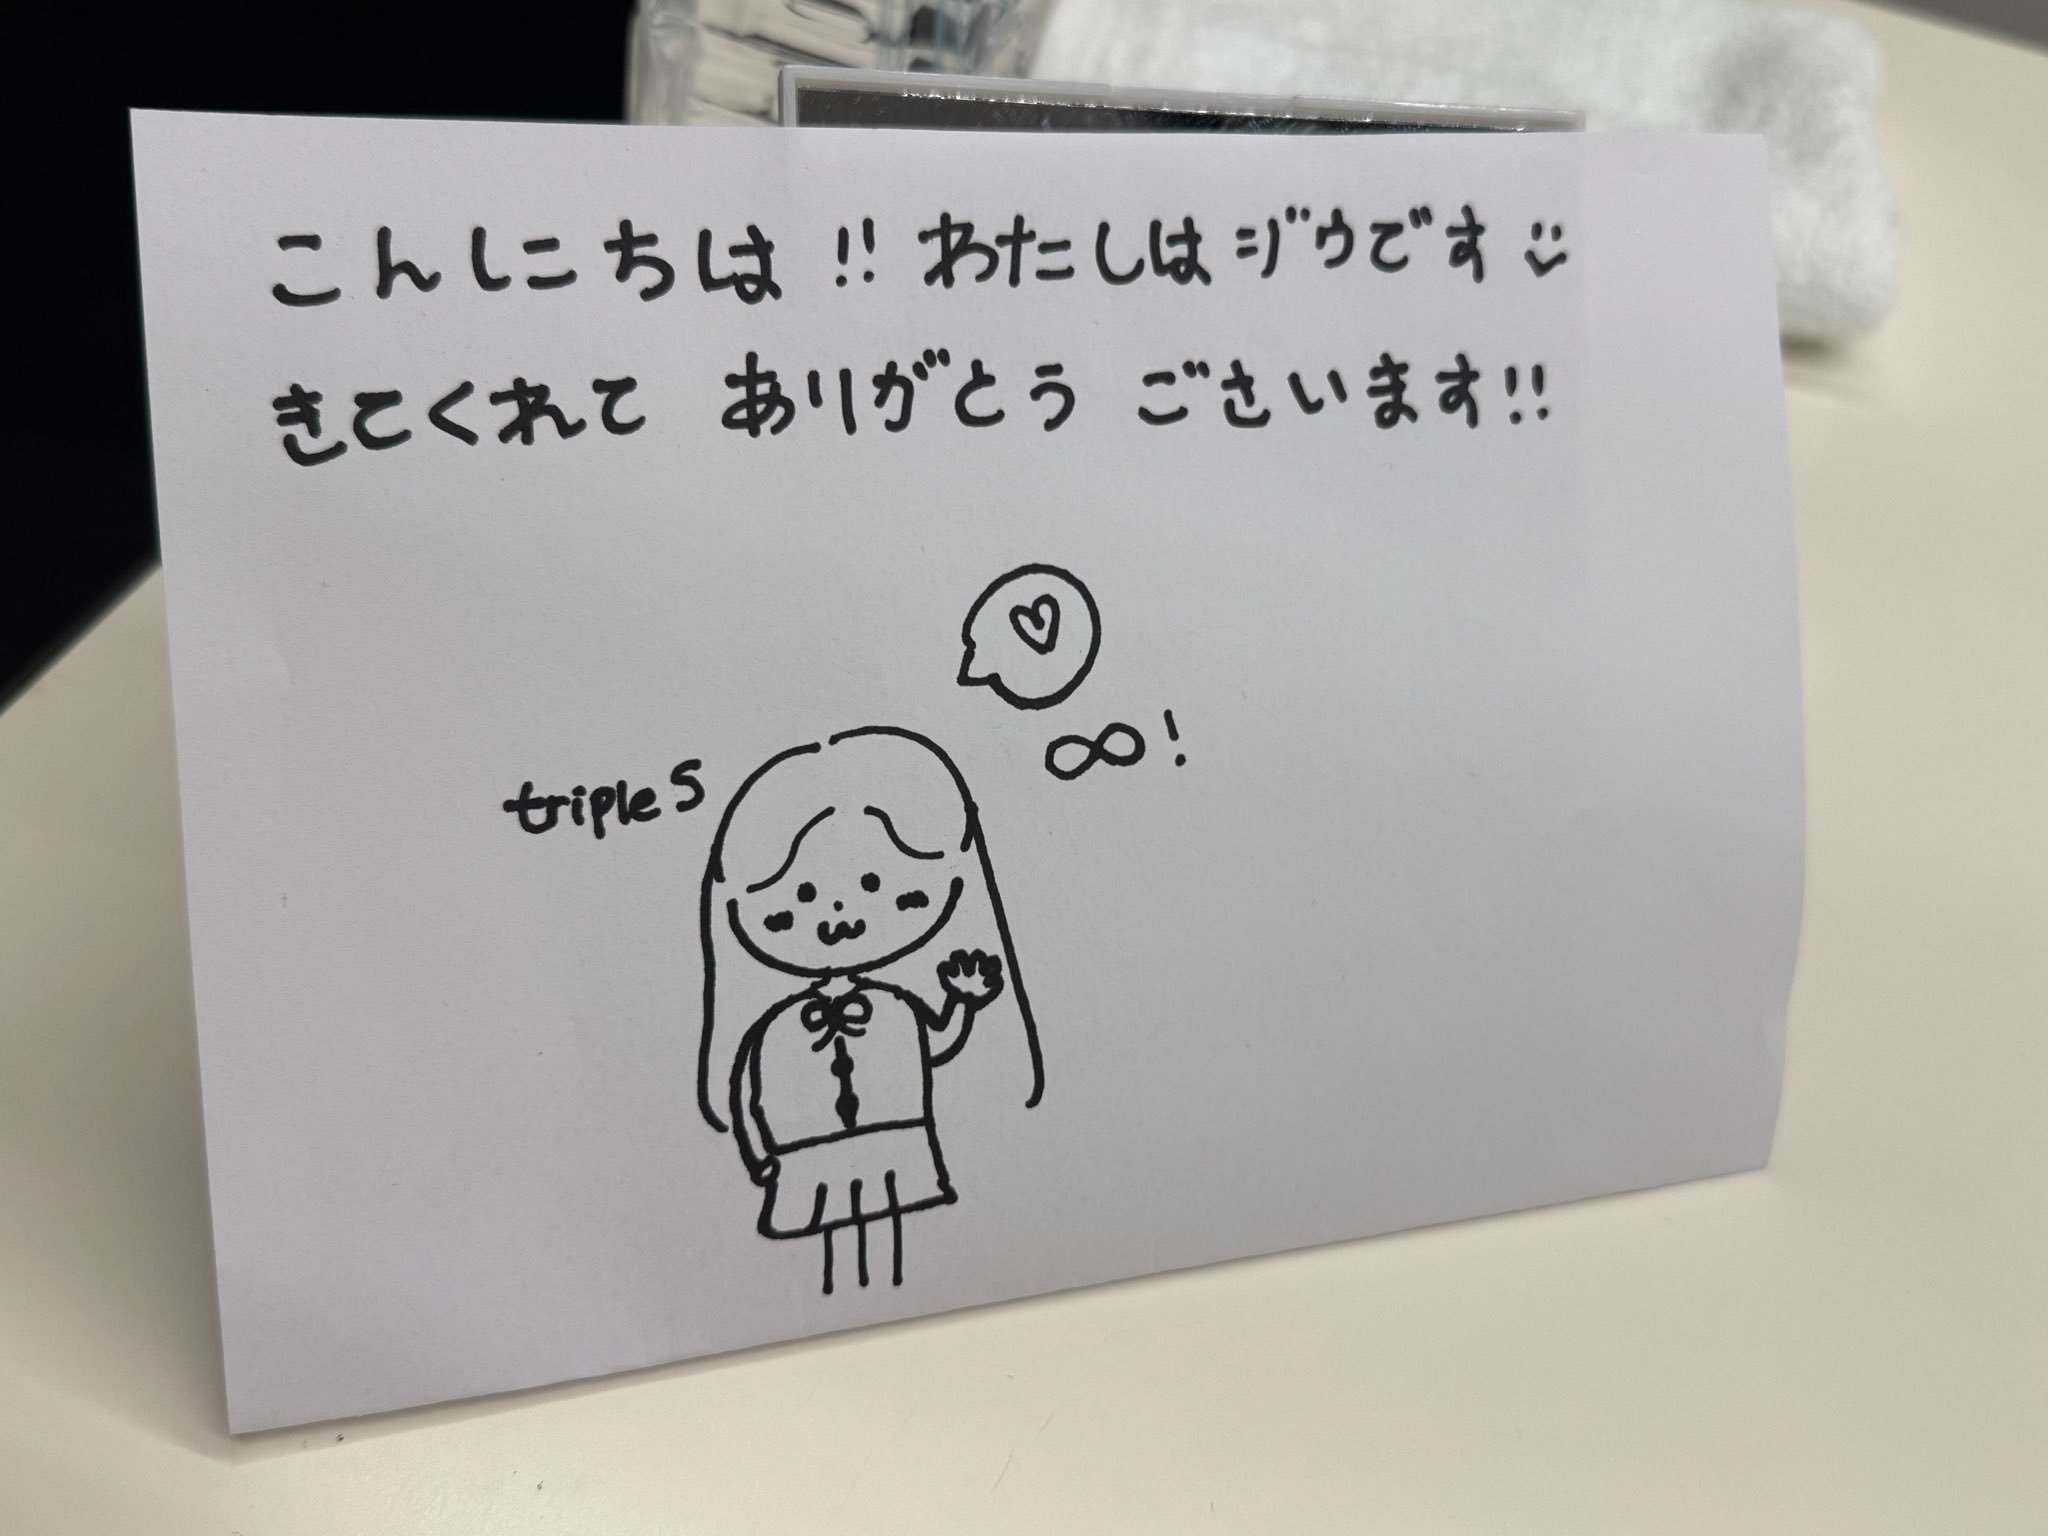 こんにちは!! わたしはジウです
きてくれて ありがとう ごさいます!!
∞!
tripleS